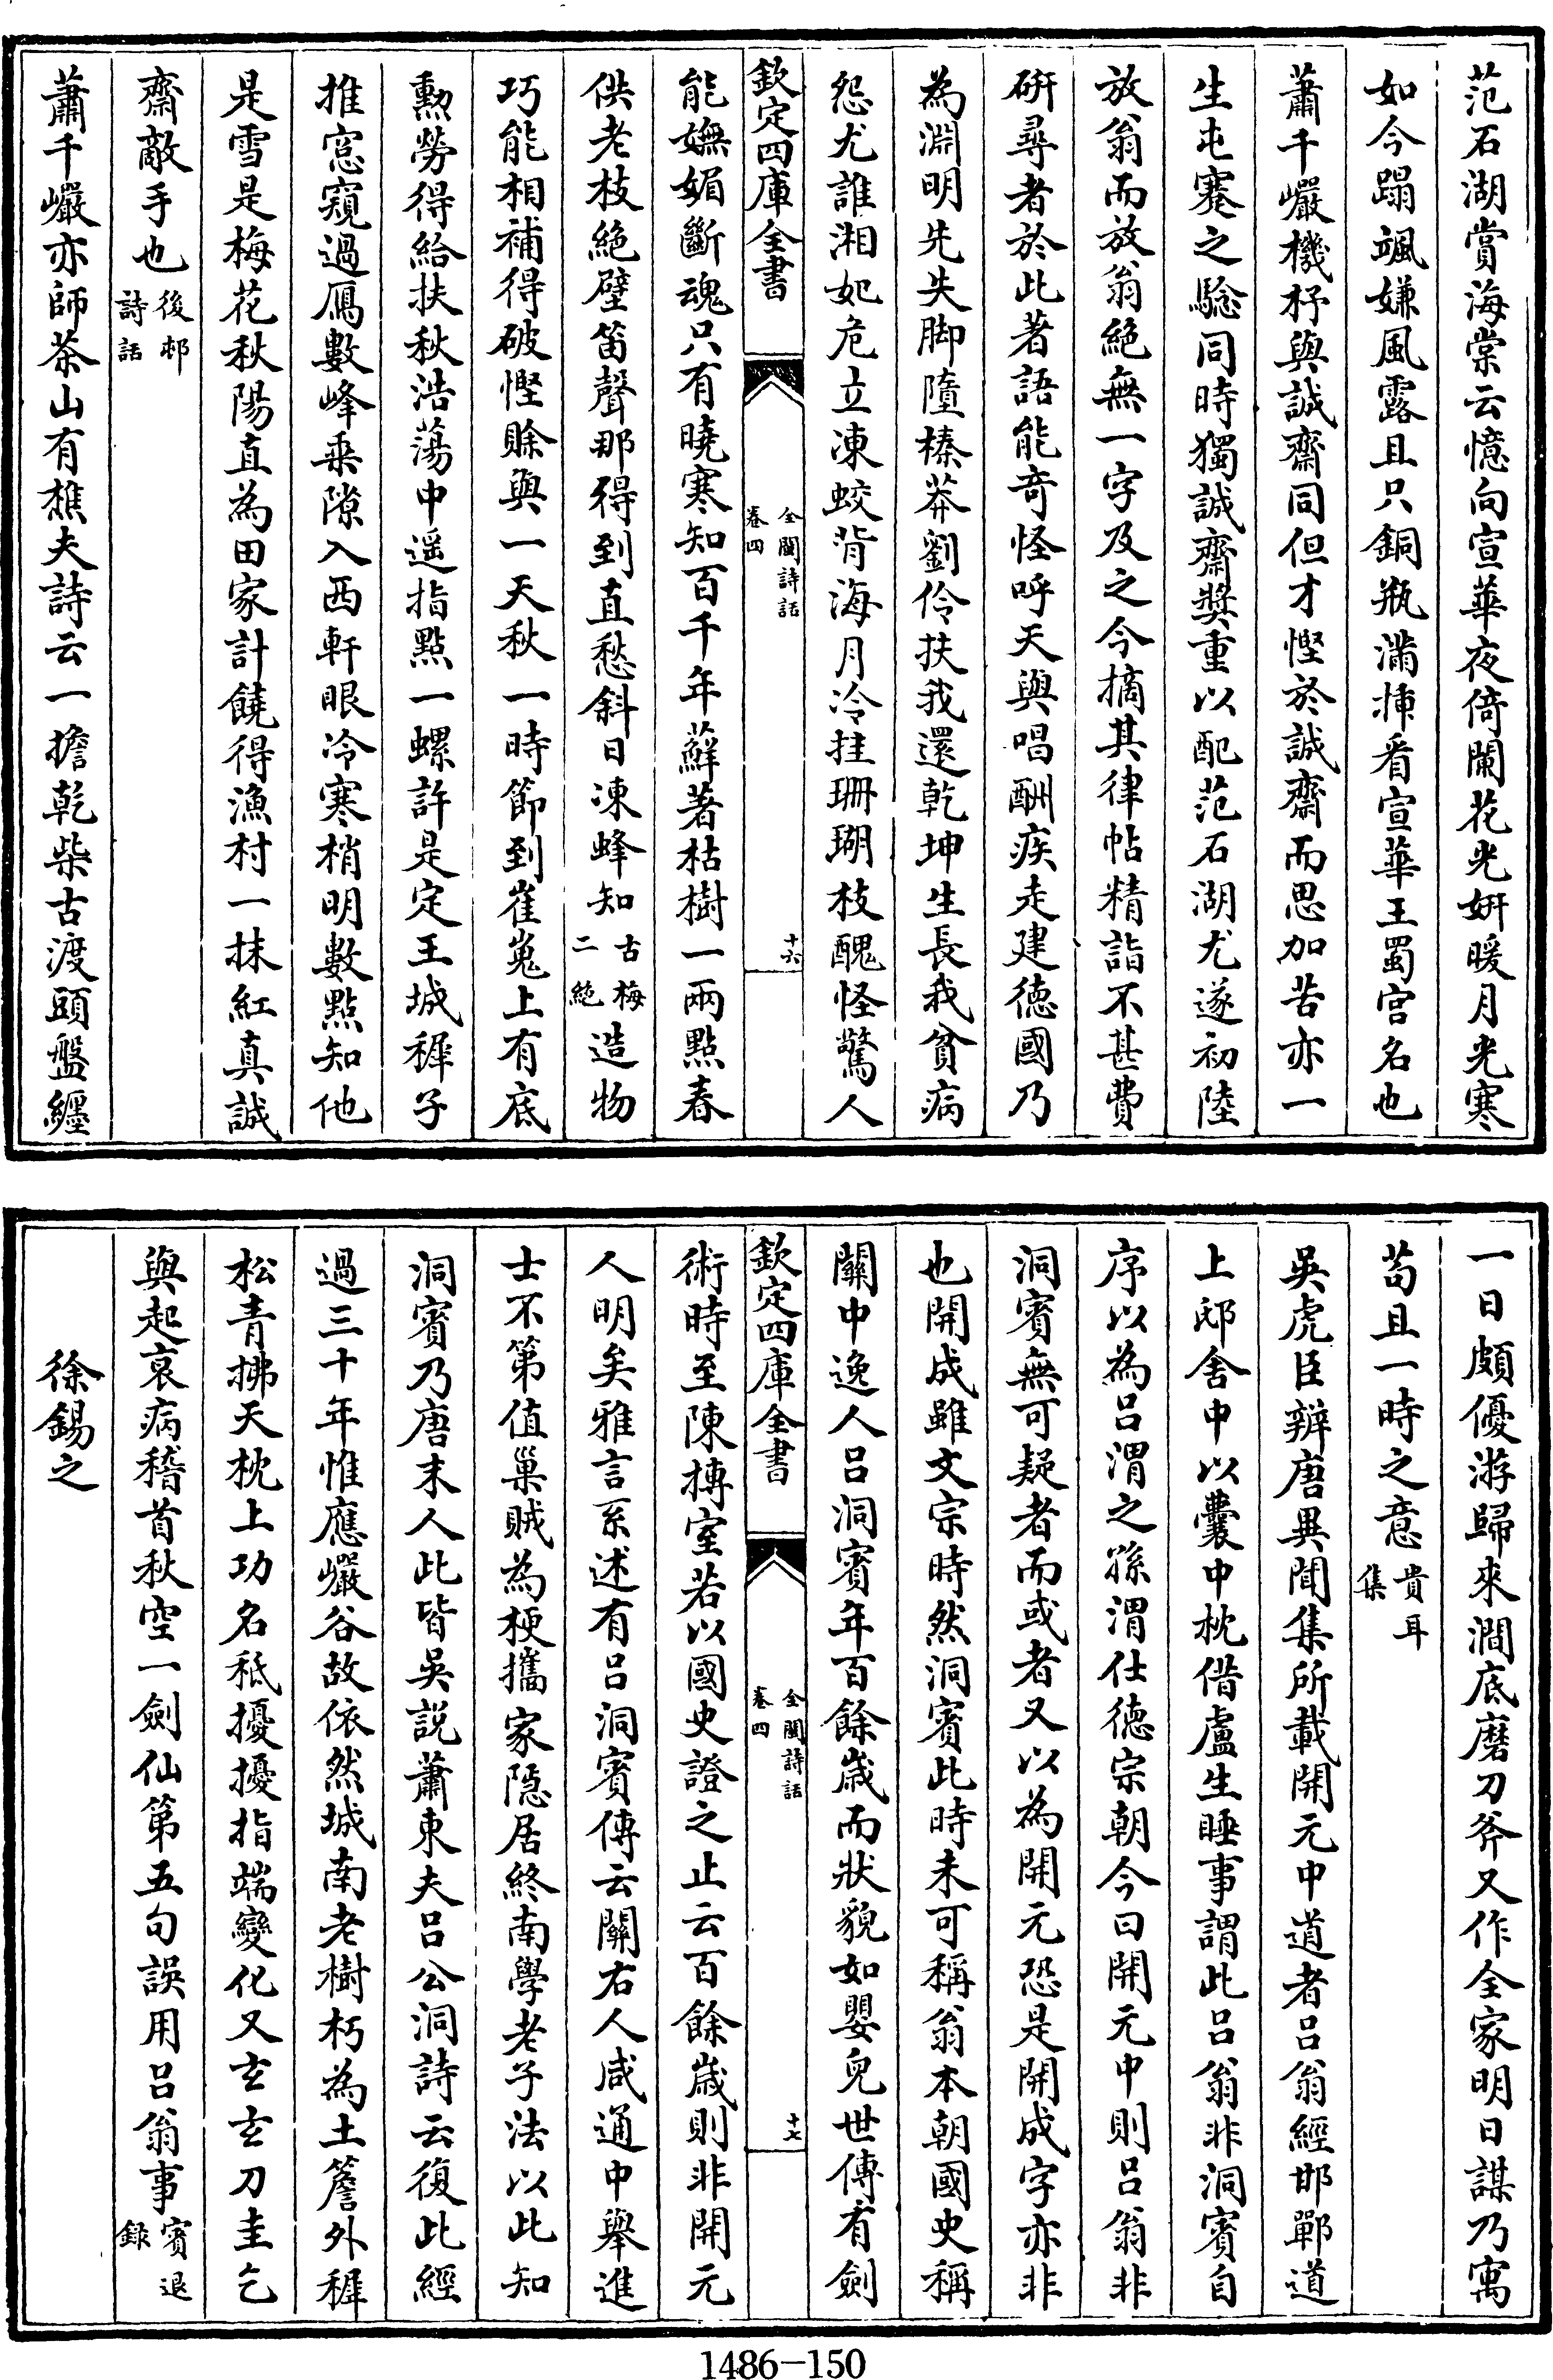 范石湖賞海棠云憶向宣華夜倚闌花光妍暖月光寒
如今蹋颯嫌風露且只銅瓶滿揷看宣華王蜀宫名也
蕭千巖機杼與誠齋同但才慳於誠齋而思加苦亦一
生屯蹇之騐同時獨誠齋奬重以配范石湖尤遂初陸
放翁而放翁絶無一字及之今摘其律帖精詣不甚費
研尋者於此著語能竒怪呼天與唱酬疾走建德國乃
為淵明先失脚墮榛莽劉伶扶我還乾坤生長我貧病
怨尤誰湘妃危立凍蛟背海月冷挂珊瑚枝醜怪驚人
欽定四庫全書
全閩詩話
卷四
十六
能嫵媚斷魂只有曉寒知百千年蘚著枯樹一兩點春
供老枝絶壁笛聲那得到直愁斜日凍蜂知古梅二絶造物
巧能相補得破慳賒與一天秋一時節到崔嵬上有底
勲勞得給扶秋浩蕩中遥指點一螺許是定王城穉子
推窓窺過鴈數峰乗隙入西軒眼冷寒梢明數點知他
是雪是梅花秋陽直為田家計饒得漁村一抹紅真誠
齋敵手也後邨詩話
蕭千巖亦師茶山有樵夫詩云一擔乾柴古渡頭盤纏
一日頗優游歸來澗底磨刀斧又作全家明日謀乃寓
茍且一時之意貴耳集
吳虎臣辨唐異聞集所載開元中道者吕翁經邯鄲道
上邸舍中以囊中枕借盧生睡事謂此吕翁非洞賓自
序以為吕渭之孫渭仕德宗朝今曰開元中則吕翁非
洞賓無可疑者而或者又以為開元恐是開成字亦非
也開成雖文宗時然洞賓此時未可稱翁本朝國史稱
關中逸人吕洞賓年百餘歳而狀貌如嬰兒世傳有劍
欽定四庫全書
全閩詩話
卷四
十七
術時至陳摶室若以國史證之止云百餘歳則非開元
人明矣雅言系述有吕洞賓傳云關右人咸通中舉進
士不第值巢賊為梗攜家隠居終南學老子法以此知
洞賓乃唐末人此皆吳説蕭東夫吕公洞詩云復此經
過三十年惟應巖谷故依然城南老樹朽為土簷外穉
松青拂天枕上功名秖擾擾指端變化又玄玄刀圭乞
與起衰病稽首秋空一劍仙第五句誤用吕翁事賓退録
徐錫之
1486-150